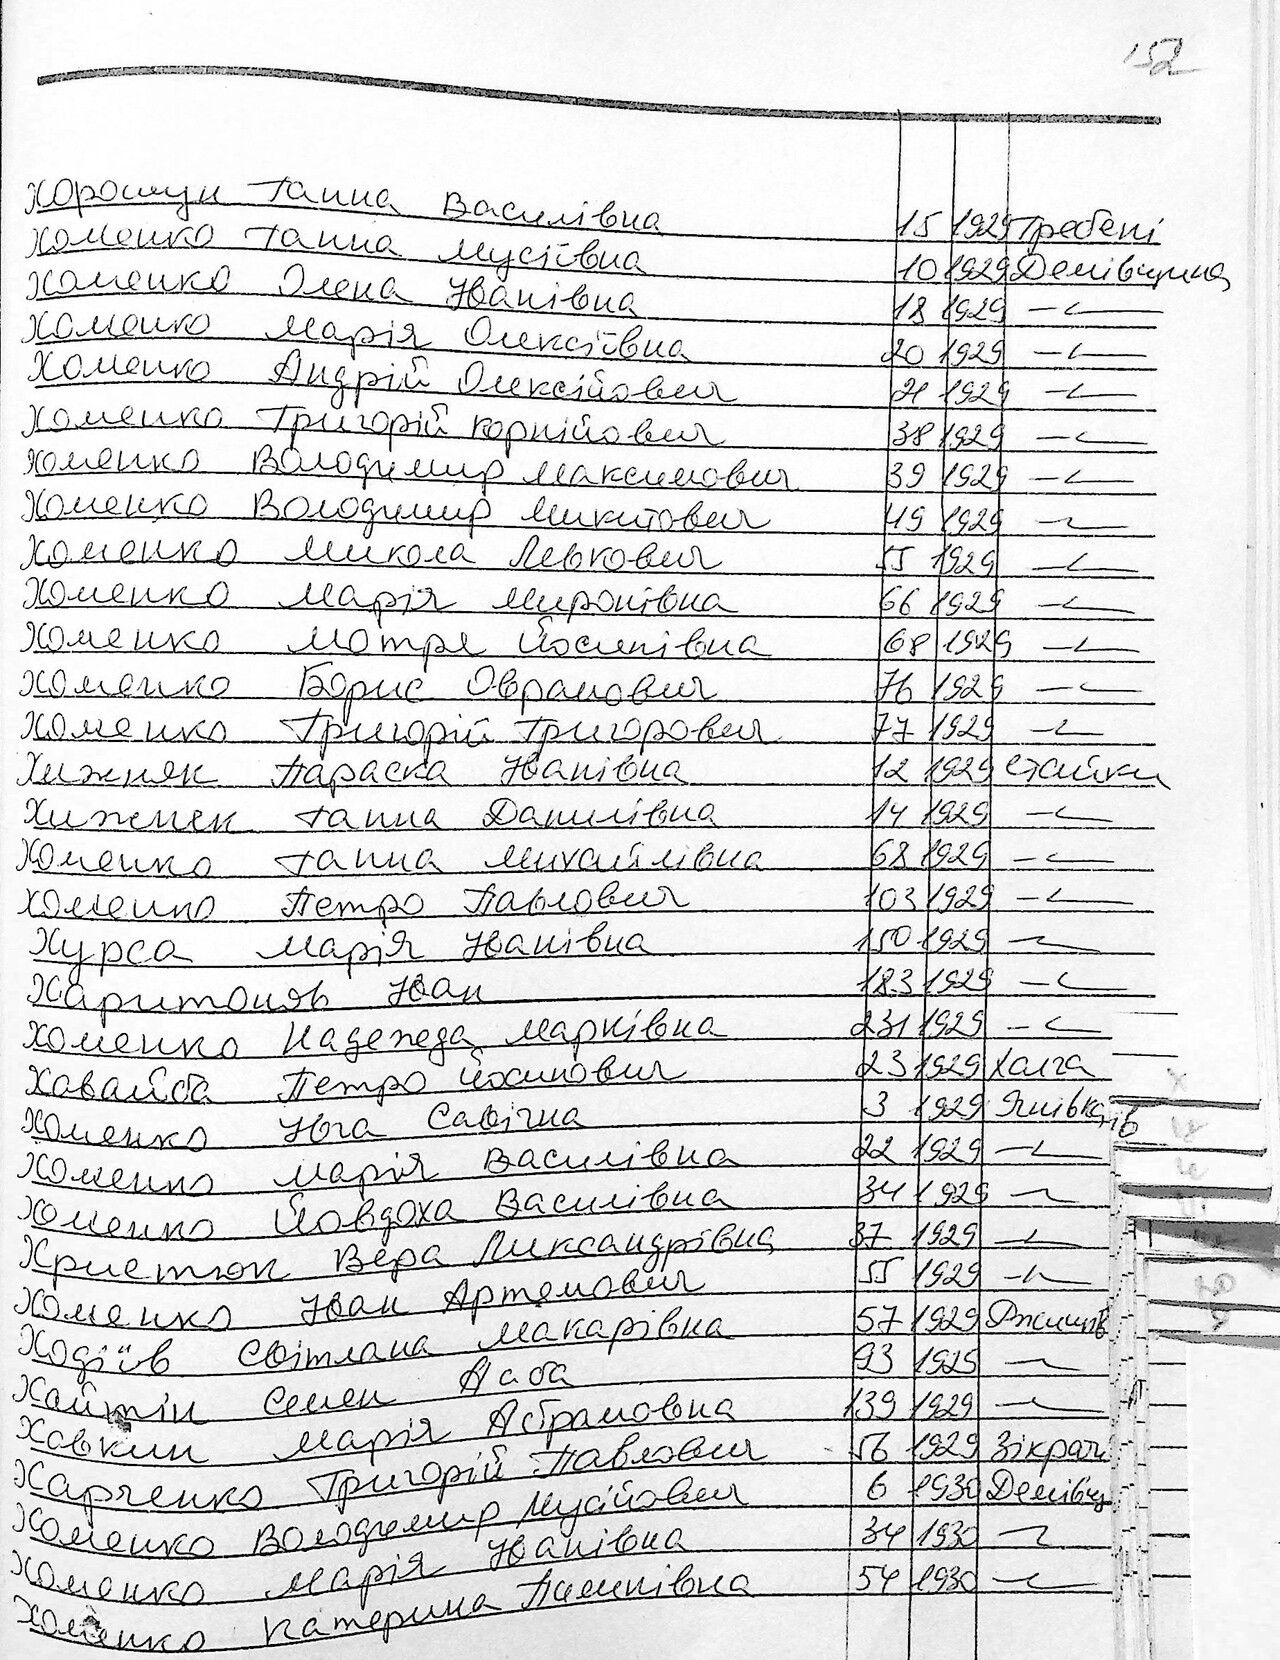 152
Хорошун Ганна Василівна 15 1929 Гребені
Хоменко Ганна Мусіївна 10 1929 Демівщина
Хоменко Олена Іванівна 18 1929 —〃—
Хоменко Марія Олексіївна 20 1929 —〃—
Хоменко Андрій Олексійович 21 1929 —〃—
Хоменко Григорій Корнійович 38 1929 —〃—
Хоменко Володимир Максимович 39 1929 —〃—
Хоменко Володимир Микитович 49 1929 —〃—
Хоменко Микола Левкович 55 1929 —〃—
Хоменко Марія Миронівна 66 1929 —〃—
Хоменко Мотря Йосипівна 68 1929 —〃—
Хоменко Борис Оврамович 76 1929 —〃—
Хоменко Григорій Григорович 77 1929 —〃—
Хижняк Параска Іванівна 12 1929 Стайки
Хижнек Ганна Данилівна 14 1929 —〃—
Хоменко Ганна Михайлівна 68 1929 —〃—
Хоменко Петро Павлович 103 1929 —〃—
Хурса Марія Іванівна 150 1929 —〃—
Харитоняв Іван 183 1929 —〃—
Хоменко Надежда Марківна 231 1929 —〃—
Хавайба Петро Йосипович 23 1929 Халча
Хоменко Юга Савічна 3 1929 Янівка
Хоменко Марія Василівна 22 1929 —〃—
Хоменко Йовдоха Василівна 34 1929 —〃—
Христюк Вера Лиександрівна 37 1929 —〃—
Хоменко Іван Артемович 55 1929 —〃—
Ходіїв Світлана Макарівна 57 1929 Ржищів
Хайтін Семен 93 1929 —〃—
Хавкин Марія Абрамовна 139 1929 —〃—
Харченко Григорій Павлович 56 1929 Зікрачі
Хоменко Володимир Мусійович 6 1930 Демівщ
Хоменко Марія Іванівна 34 1930 —〃—
Хоменко Катерина Пилипівна 54 1930 —〃—